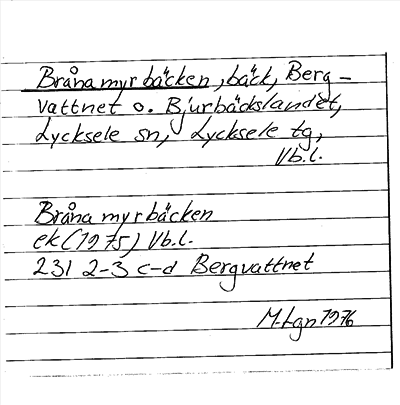 Bråna myrbäcken, bäck, Berg-
vattnet o. Bjurbäckslandet,
Lycksele sn, Lycksele tg,
Vb.l.
Bråna myrbäcken
ek (1975) Vb.l.
231 2-3 c-d Bergvattnet
M. Lgn 1976